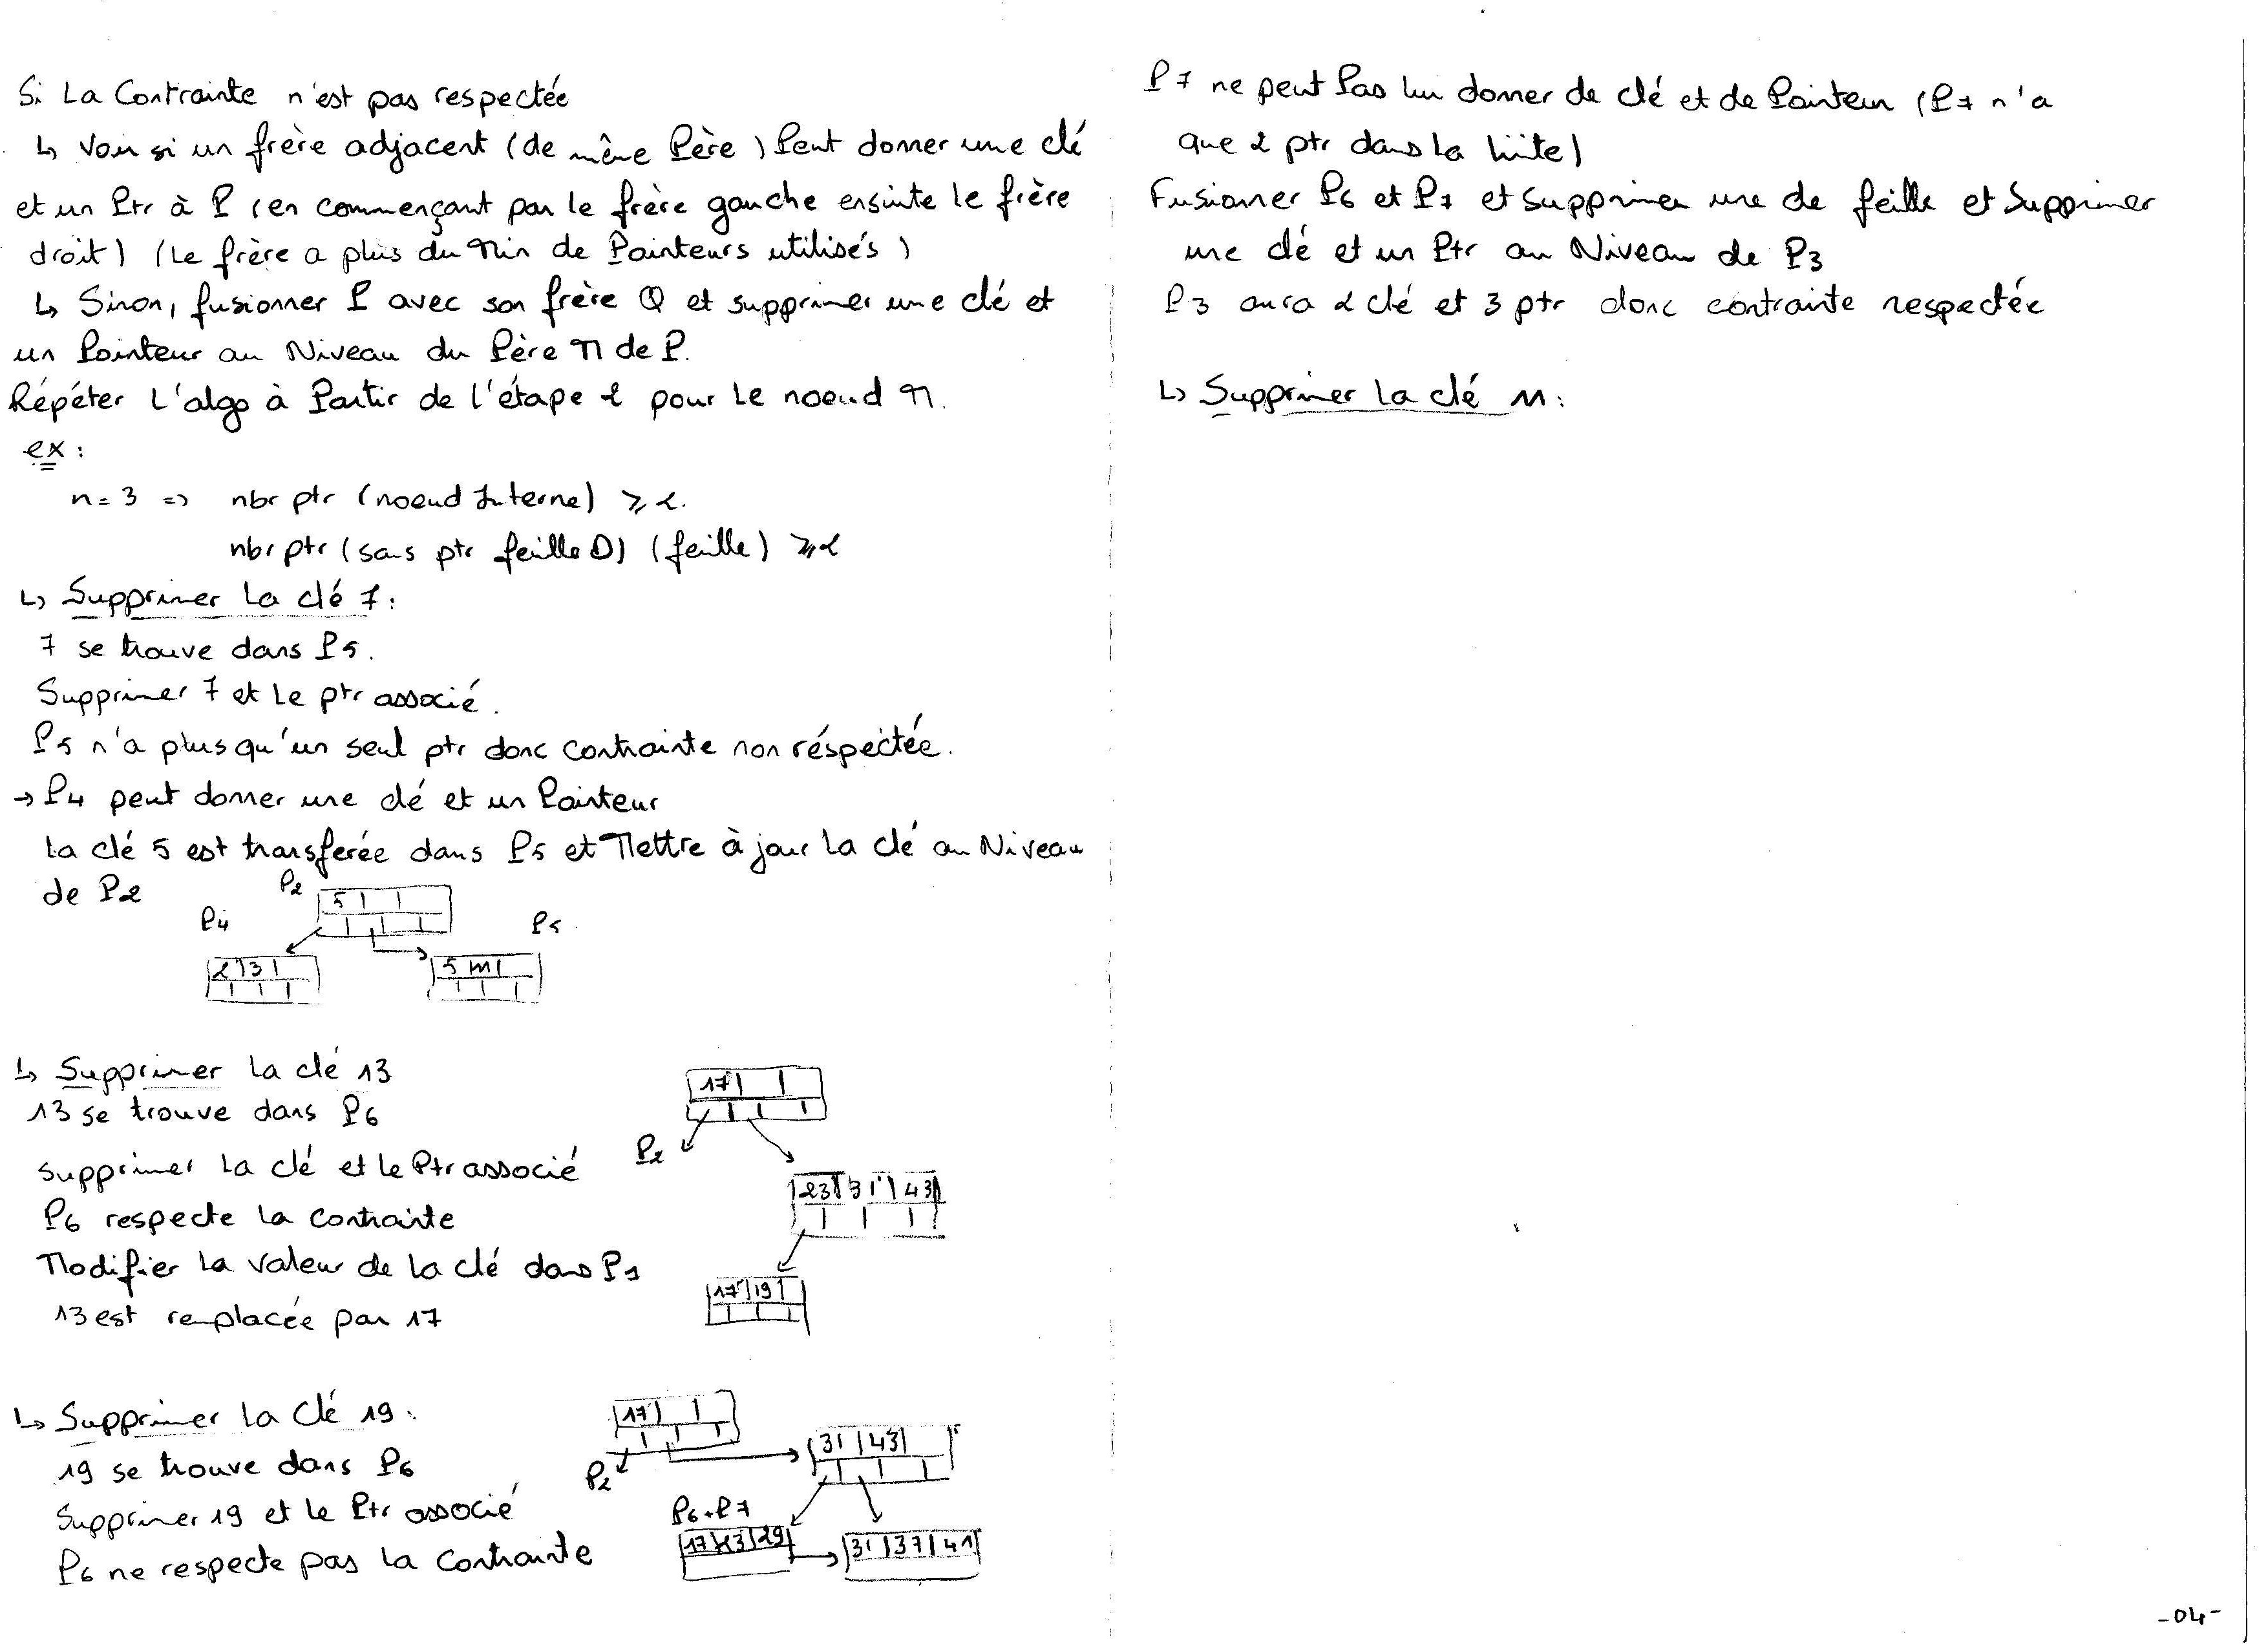 Si La Contrainte n'est pas respectée
↳ Voir si un frère adjacent (de même Père) Peut donner une clé
et un Ptr à P (en commençant par le frère gauche ensuite le frère
droit) (Le frère a plus du Min de Pointeurs utilisés)
↳ Sinon, fusionner P avec son frère Q et supprimer une clé et
un Pointeur au Niveau du Père M de P.
Répéter L'algo à Partir de l'étape 2 pour Le noeud M.
ex:
n=3 => nbr ptr (noeud Interne) ≥ 2.
nbr ptr (sans ptr feille D) (feille) ≥ 2
↳ Supprimer La clé 7:
7 se trouve dans P5.
Supprimer 7 et Le ptr associé.
P5 n'a plus qu'un seul ptr donc contrainte non réspectée.
→ P4 peut donner une clé et un Pointeur
La clé 5 est transferée dans P5 et Mettre à jour La clé au Niveau
de P2
P2
5
P4
P5
2 3
5 11
↳ Supprimer La clé 13
13 se trouve dans P6
supprimer La clé et Le Ptr associé
P6 respecte La contrainte
Modifier La valeur de La clé dans P1
13 est remplacée par 17
17
P2
23 31 43
17 19
↳ Supprimer La Clé 19:
19 se trouve dans P6
Supprimer 19 et Le Ptr associé
P6 ne respecte pas La contrainte
17
P2
31 43
P6+P7
17 23 29
31 37 41
P7 ne peut Pas lui donner de clé et de Pointeur (P7 n'a
que 2 ptr dans La liite)
Fusionner P6 et P7 et supprimer une de feille et Supprimer
une clé et un Ptr au Niveau de P3
P3 aura 2 clé et 3 ptr donc contrainte respectée
↳ Supprimer La clé 11:
-04-